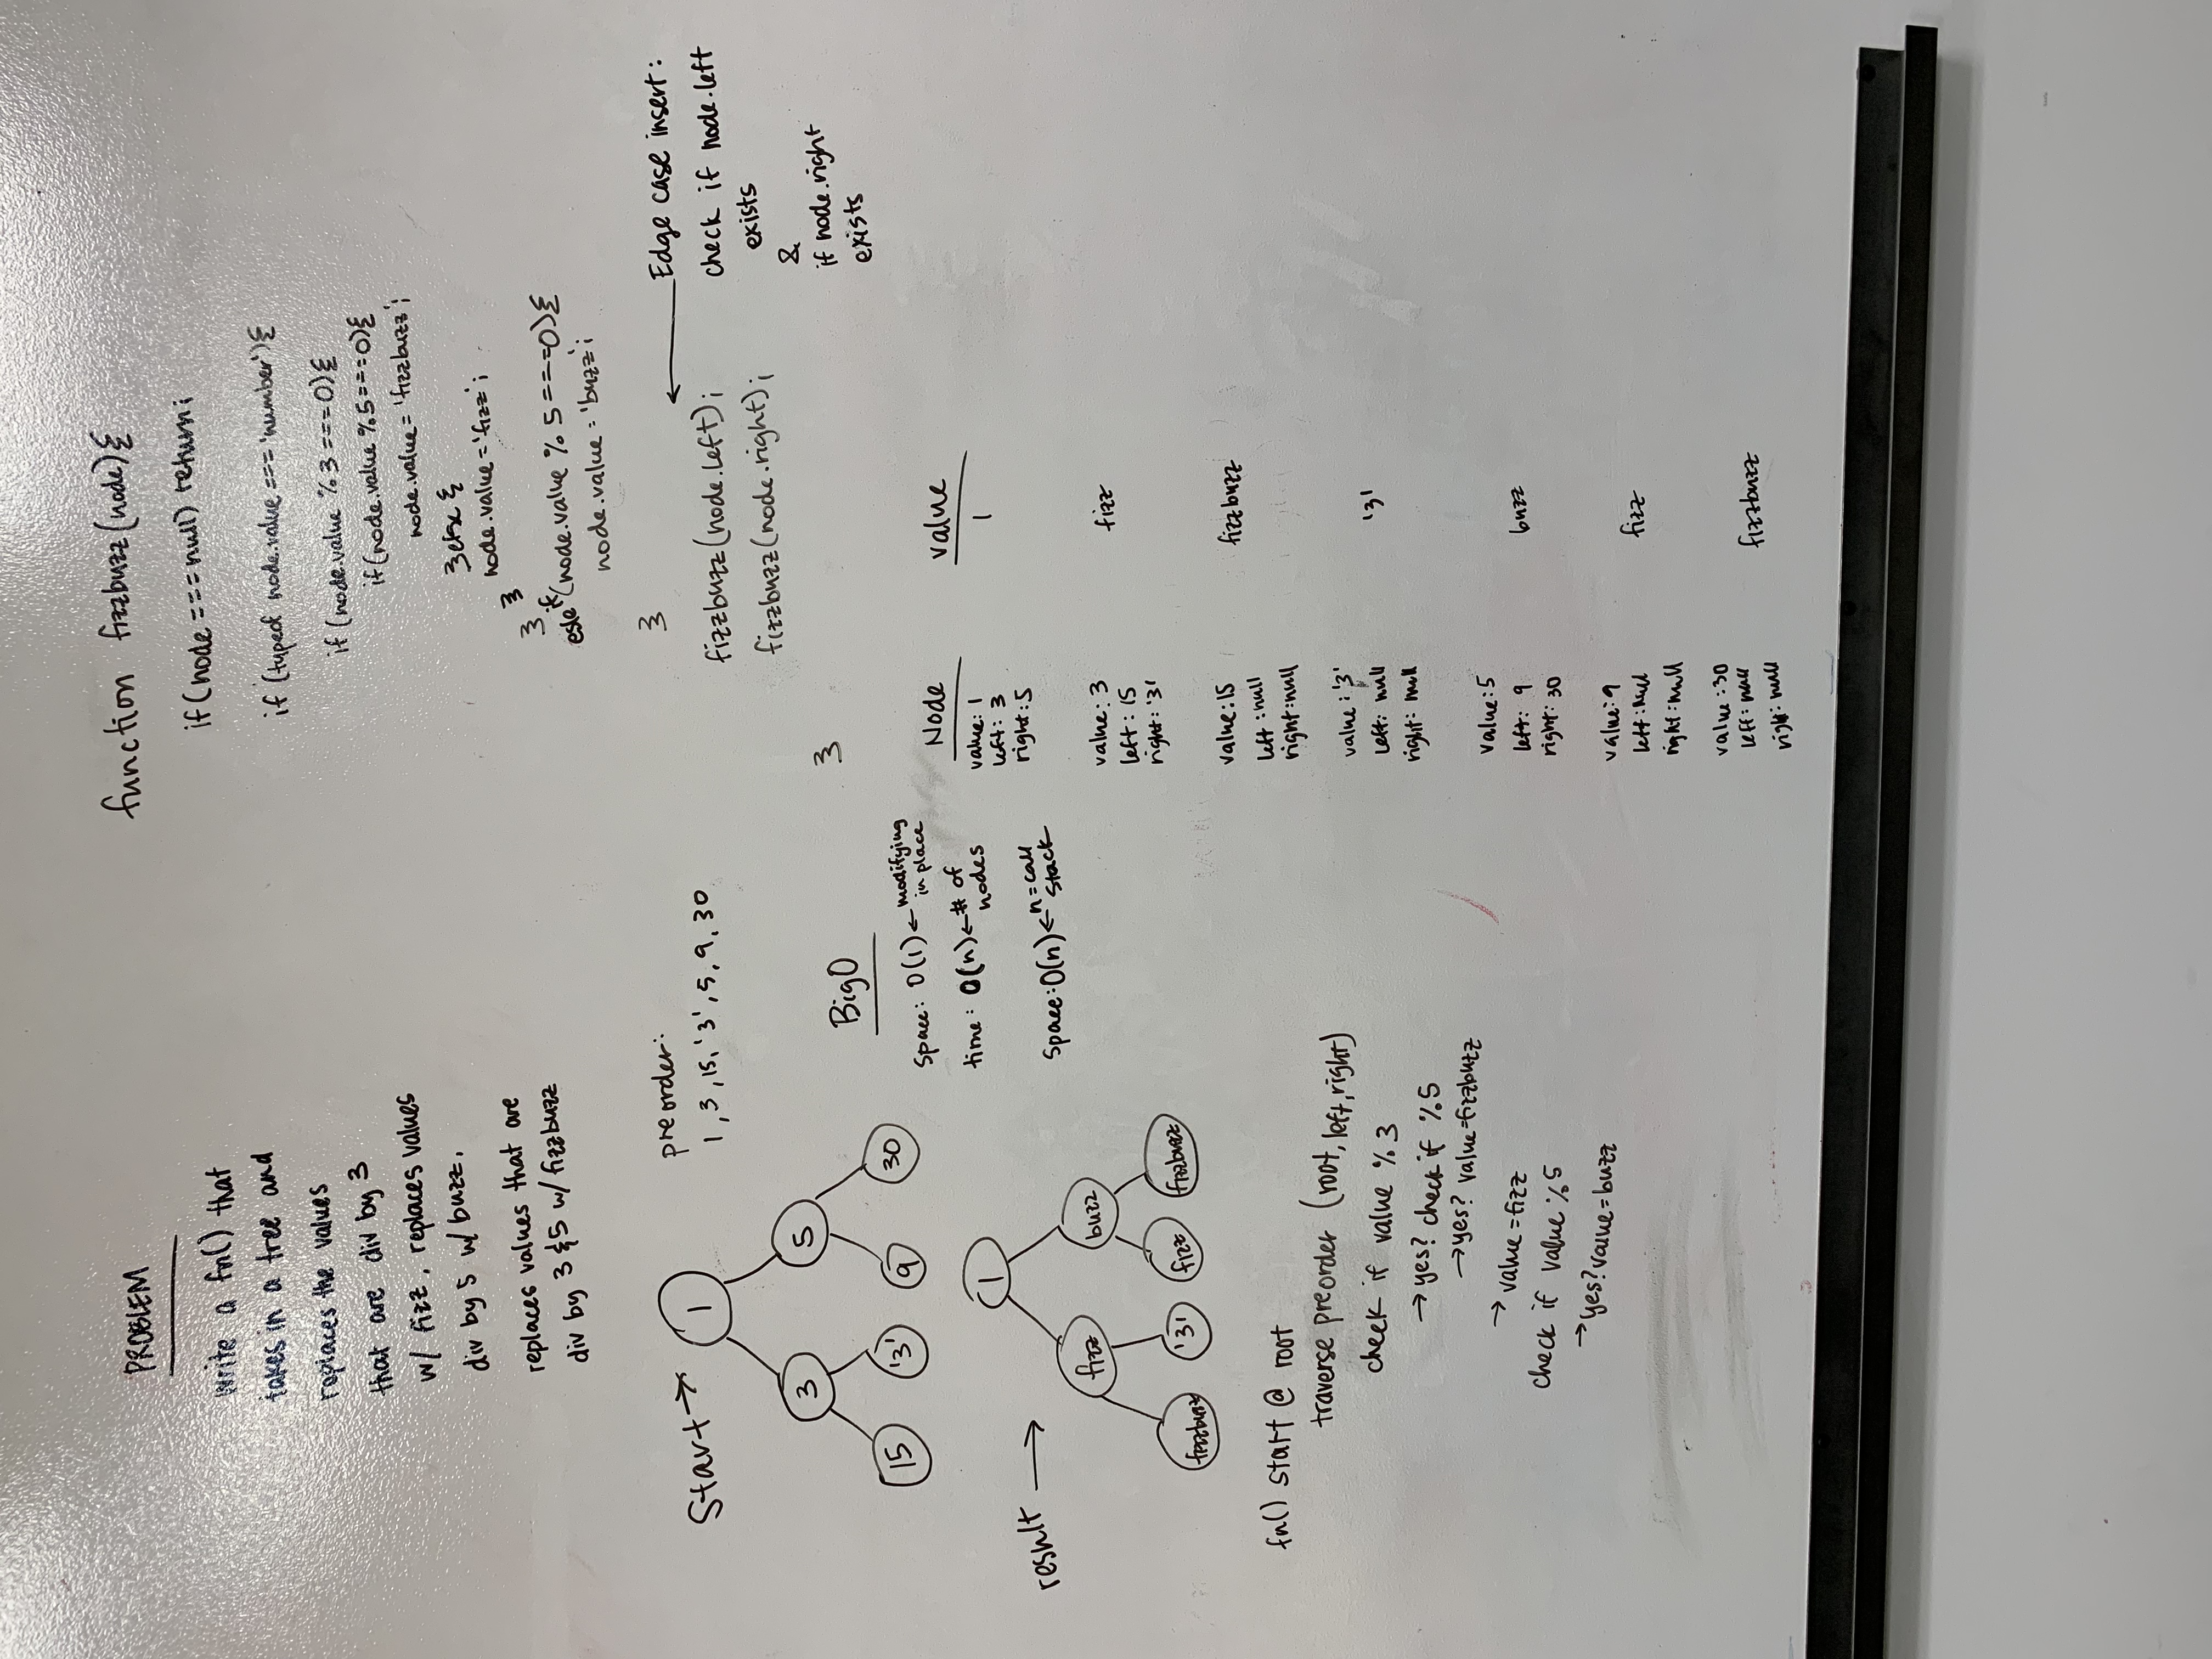 PROBLEM
write a fn() that
takes in a tree and
replaces the values
that are div by 3
w/ fizz, replaces values
div by 5 w/ buzz.
replaces values that are
div by 3 & 5 w/ fizzbuzz
Start →
1
3
5
15
'3'
9
30
preorder:
1, 3, 15, '3', 5, 9, 30
result →
1
fizz
buzz
fizzbuzz
'3'
fizz
fizzbuzz
BigO
Space: O(1) ← modifying
in place
time: O(n) ← # of
nodes
Space: O(n) ← n = call
stack
fn() start @ root
traverse preorder (root, left, right)
check if value % 3
→ yes? check if % 5
→ yes? value = fizzbuzz
→ value = fizz
check if value % 5
→ yes? value = buzz
function fizzbuzz(node){
if (node === null) return;
if (typeof node.value === 'number'){
if (node.value % 3 === 0){
if (node.value % 5 === 0){
node.value = 'fizzbuzz';
}else {
node.value = 'fizz';
}
}
esle if (node.value % 5 === 0){
node.value = 'buzz';
}
fizzbuzz(node.left);
fizzbuzz(node.right);
}
← Edge case insert:
check if node.left
exists
&
if node.right
exists
Node value
value: 1 1
left: 3
right: 5
value: 3 fizz
left: 15
right: '3'
value: 15 fizzbuzz
left: null
right: null
value: '3' '3'
left: null
right: null
value: 5 buzz
left: 9
right: 30
value: 9 fizz
left: null
right: null
value: 30 fizzbuzz
left: null
right: null